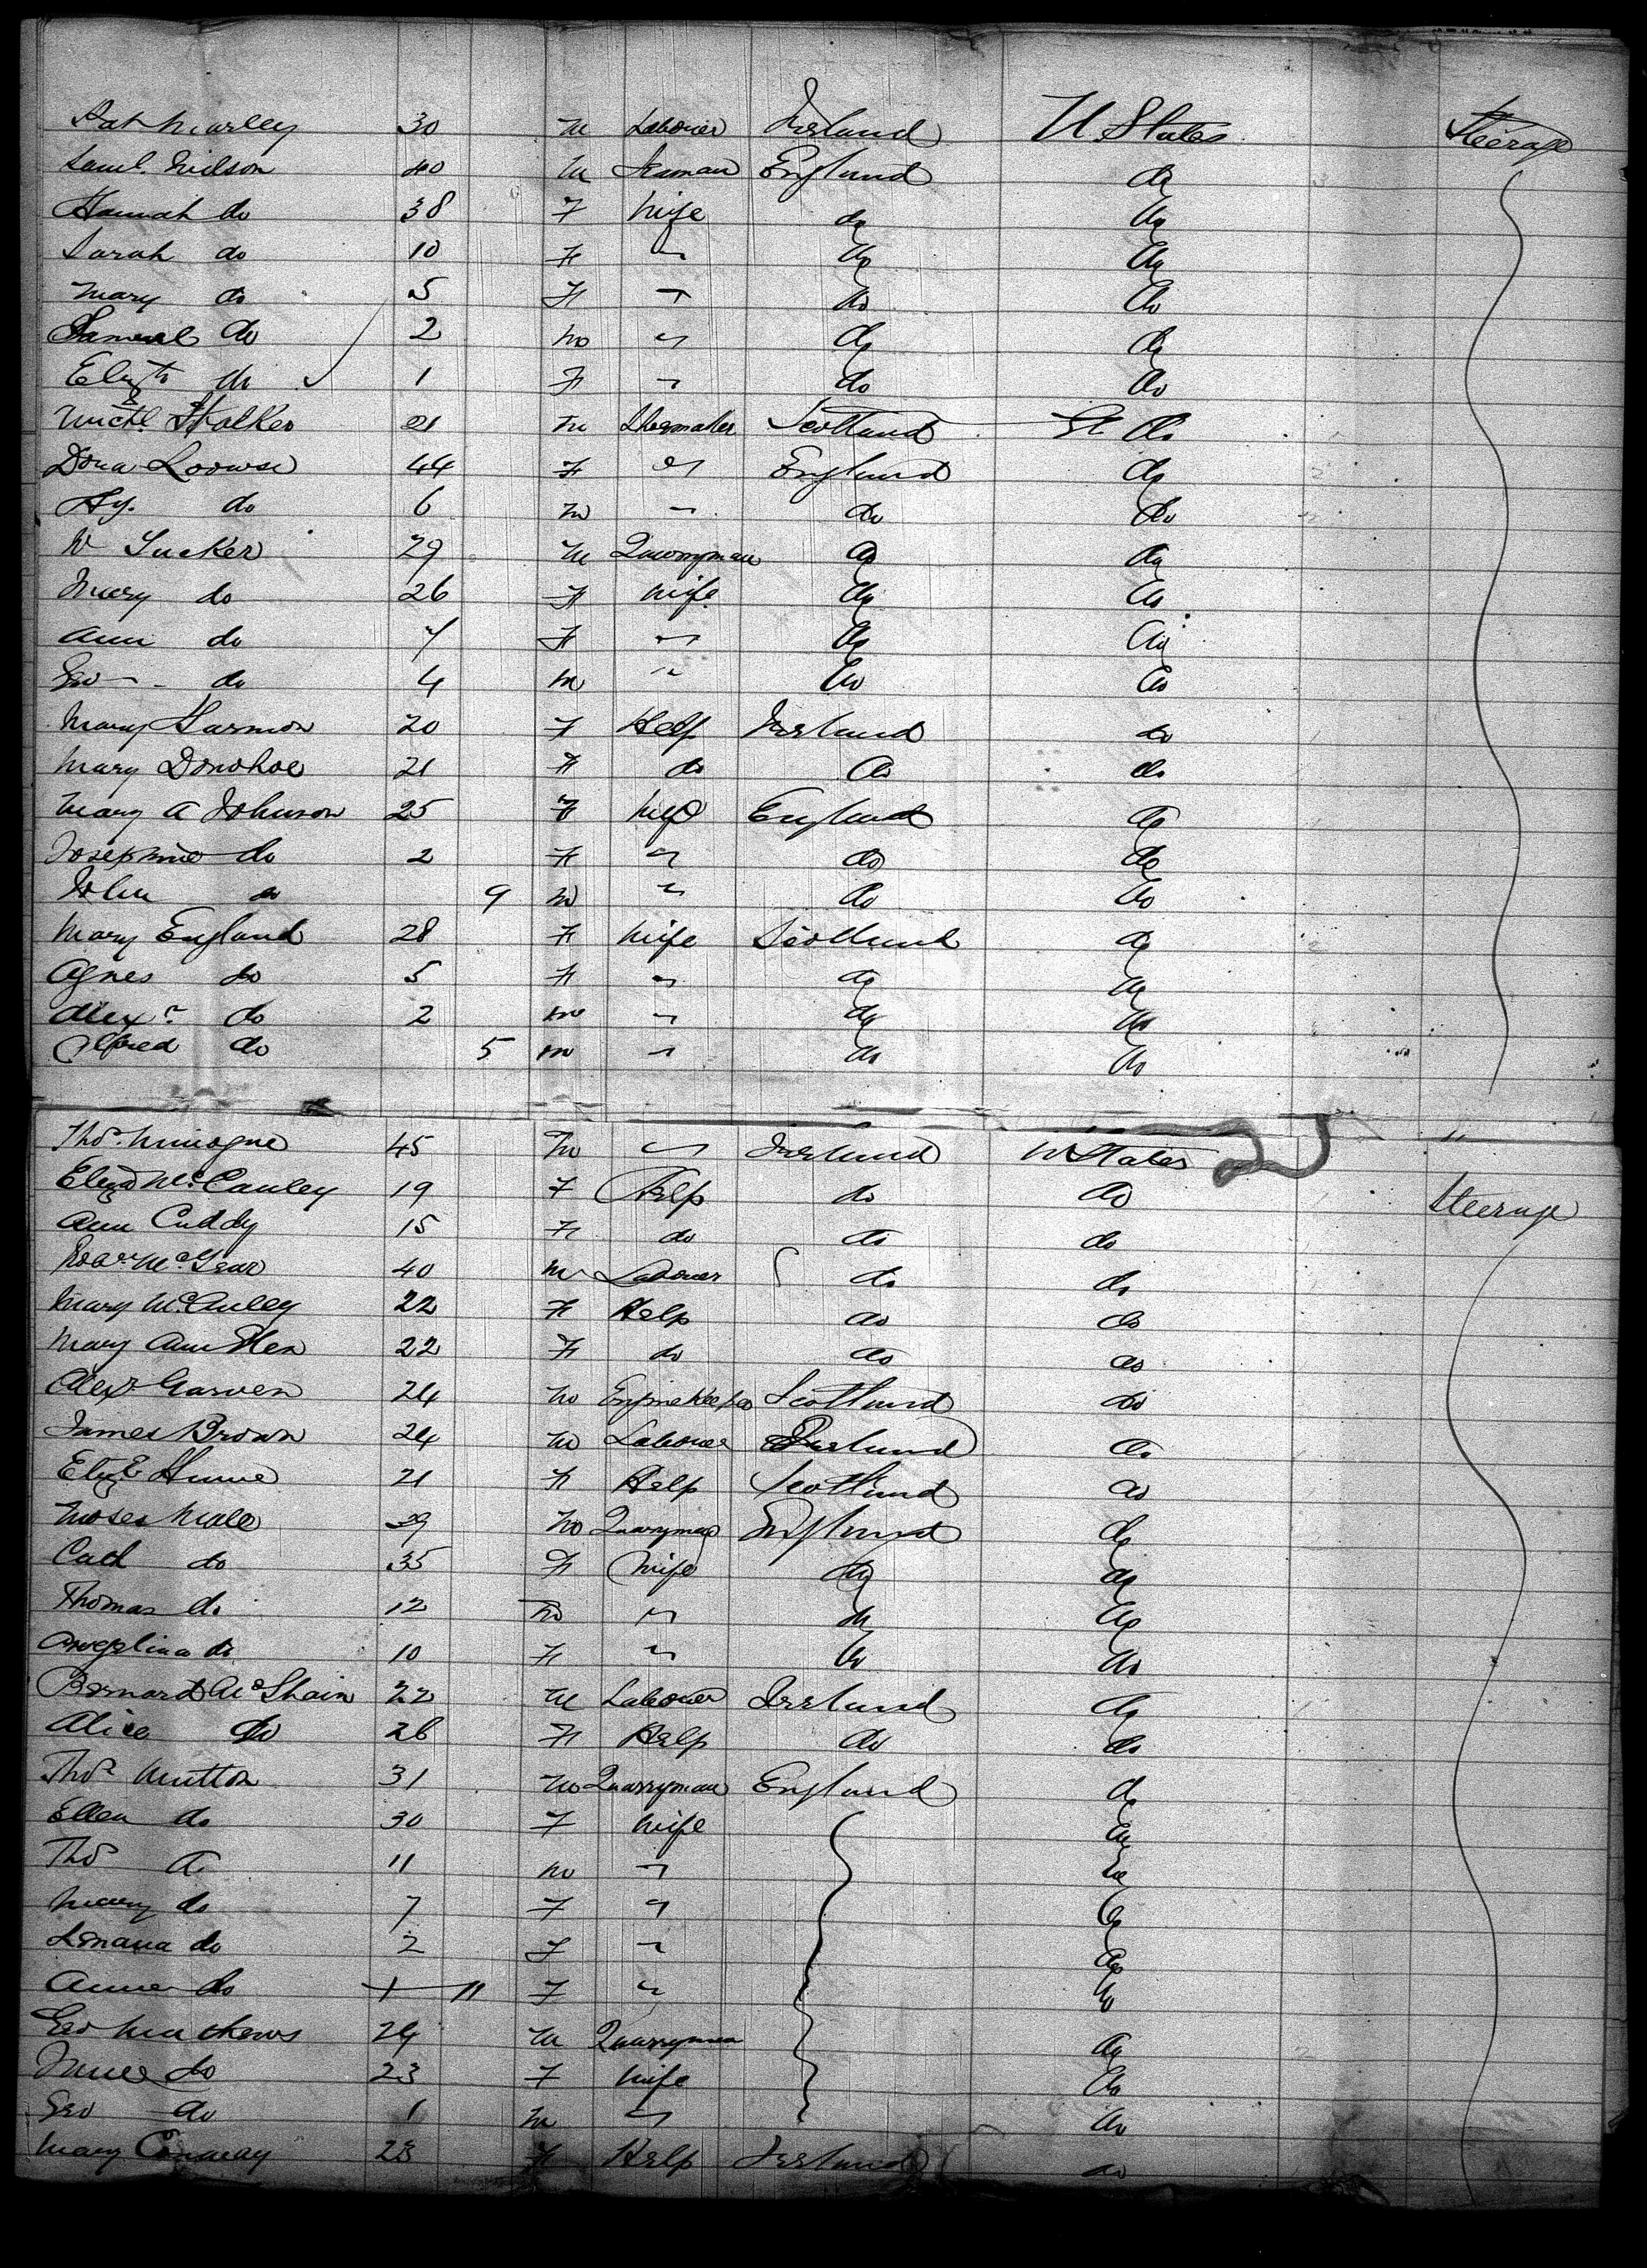 Pat 30 m Laborer Ireland U States Steerage
Saml. 40 m England do
Hannah do 38 F Wife do do
Sarah do 10 F " do do
Mary do 5 F " do do
Samuel do 2 m " do do
Elizth do 1 F " do do
Michl. Stalker 21 m Shoemaker Scotland do
44 F " England do
Hy. do 6 m " do do
W Tucker 29 m Quarryman do do
Mary do 26 F Wife do do
Ann do 7 F " do do
Geo do 4 m " do do
Mary 20 F Help Ireland do
Mary Donohoe 21 F do do do
Mary A Johnson 25 F Wife England do
Josephine do 2 F " do do
John do 9 m " do do
Mary England 28 F Wife Scotland do
Agnes do 5 F " do do
Alexr do 2 m " do do
Alfred do 5 m " do do
Thos. Minogue 45 m " Ireland U States
Eliza McCauley 19 F Help do do Steerage
Ann Cuddy 15 F do do do
40 m Laborer do do
Mary McAuley 22 F Help do do
Mary Ann 22 F do do do
Alexr Garven 24 m Engine Keeper Scotland do
James Brown 24 m Laborer Ireland do
Eliz 21 F Help Scotland do
Moses 39 m Quarryman England do
Cath do 35 F Wife do do
Thomas do 12 m " do do
Angelina do 10 F " do do
Bernard McShain 22 m Laborer Ireland do
Alice do 26 F Help do do
Thos Mutton 31 m Quarryman England do
Ellen do 30 F Wife do
Thos do 11 m " do
Mary do 7 F " do
do 2 F " do
Annie do 11 F " do
Geo Mathews 24 m Quarryman do
do 23 F Wife do
Geo do 1 m " do
Mary Conway 23 F Help Ireland do